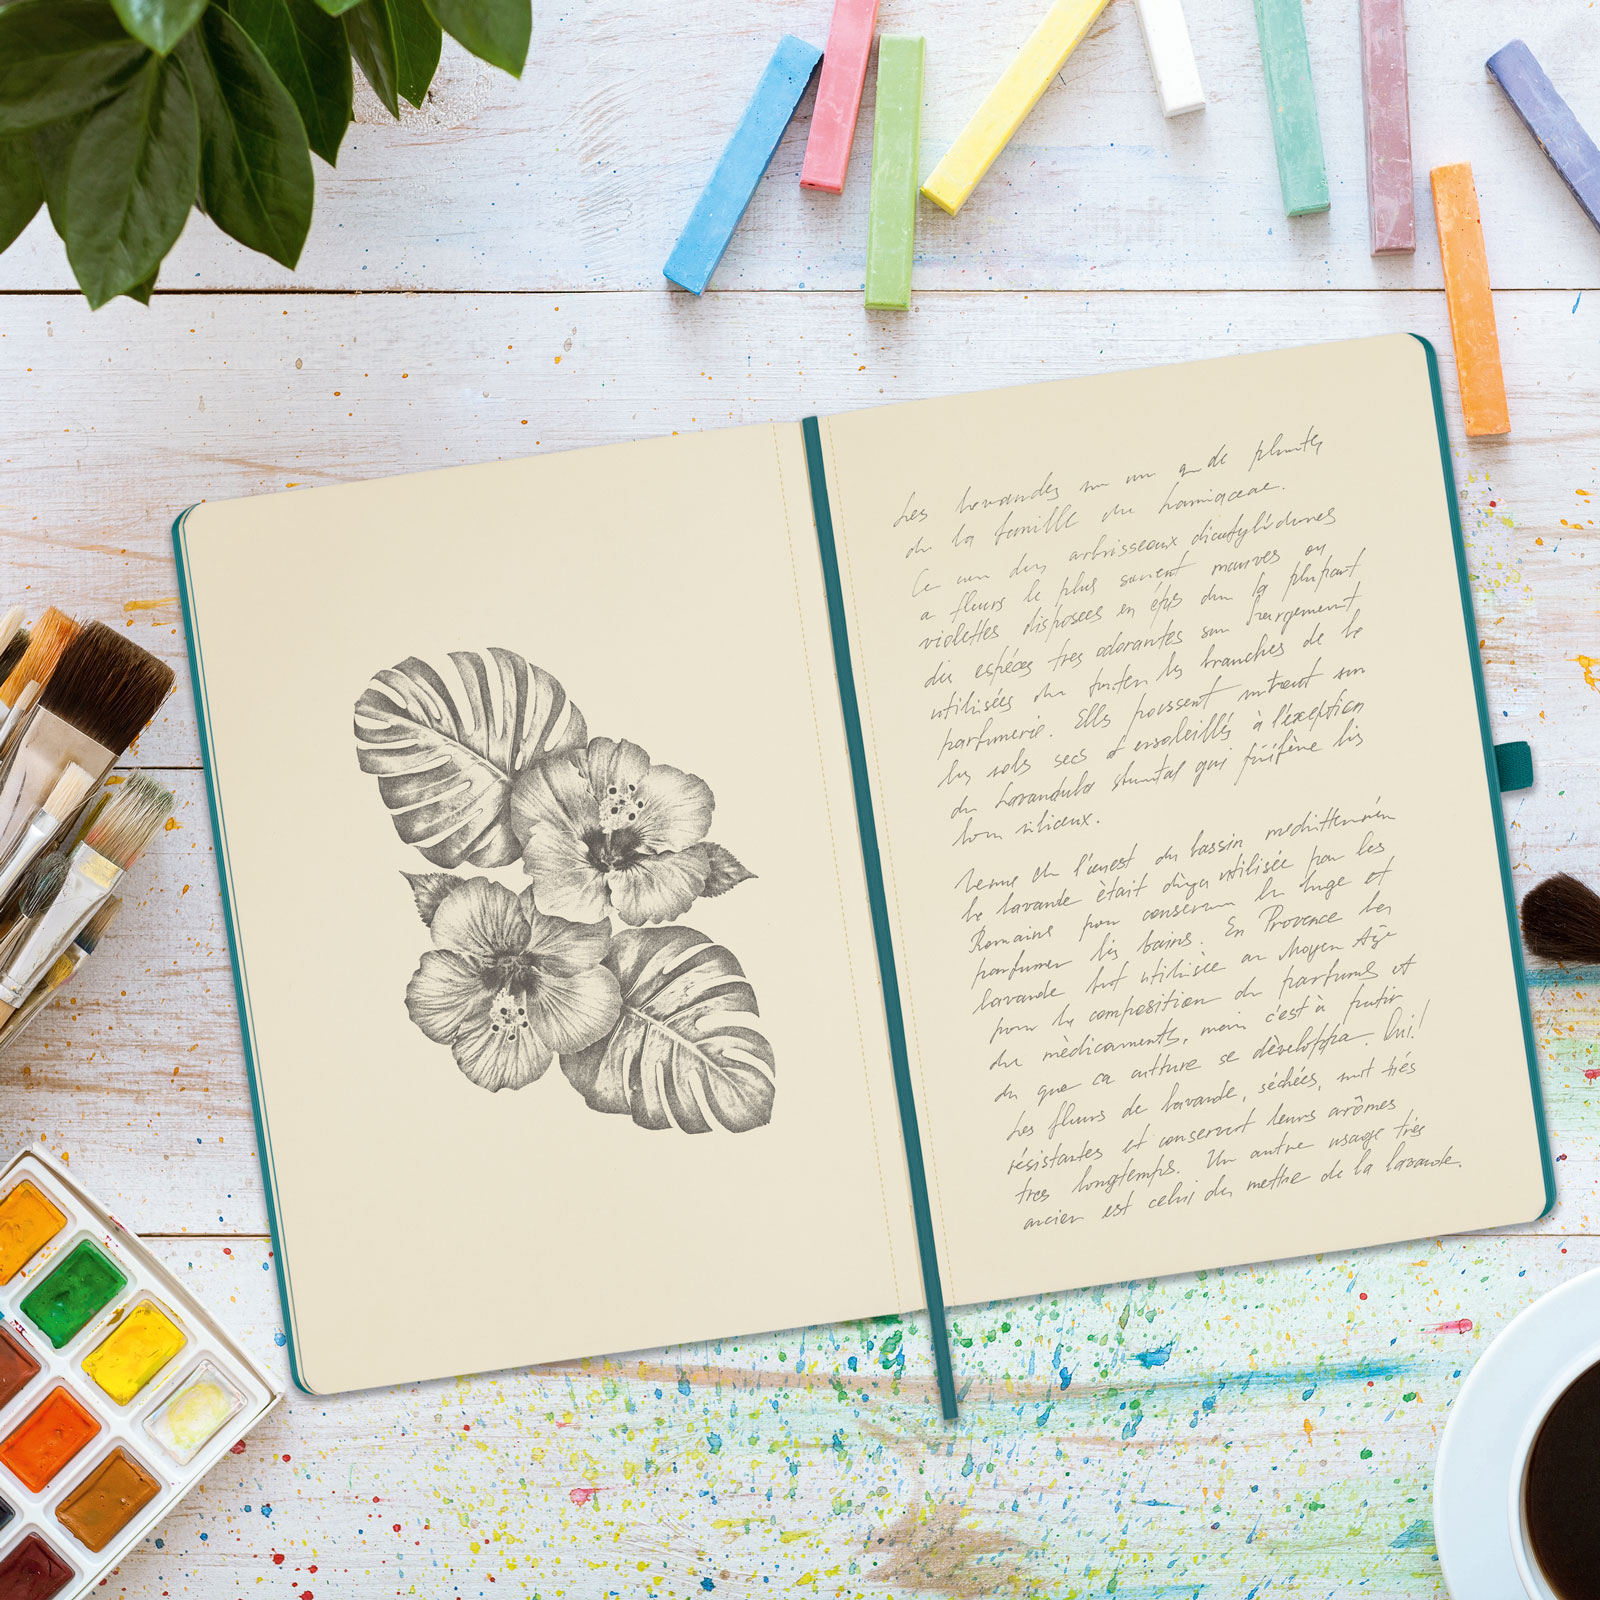 Les lavandes un de plantes
de la famille du Lamiaceae.
Ce des arbrisseaux dicotylédones
a fleurs le plus souvent mauves ou
violettes disposees en épis la plupart
des espéces tres odorantes largement
utilisées les branches de la
parfumerie. Elles poussent
les sols secs et ensoleillés à l'exception
du Lavandula qui préfère les
siliceux.
Venue de l'ouest du bassin
la lavande ètait utilisée par les
Romains pour conserver le linge et
parfumer les bains. En Provence la
lavande fut utilisèe au Moyen Age
pour la composition de parfums et
du mèdicaments, mais c'est à partir
du que ca culture se dèveloppa. Oui!
Les fleurs de lavande, séchées, sont trés
résistantes et conservent leurs arômes
tres longtemps. Un autre usage tres
ancien est celui du mettre de la lavande.